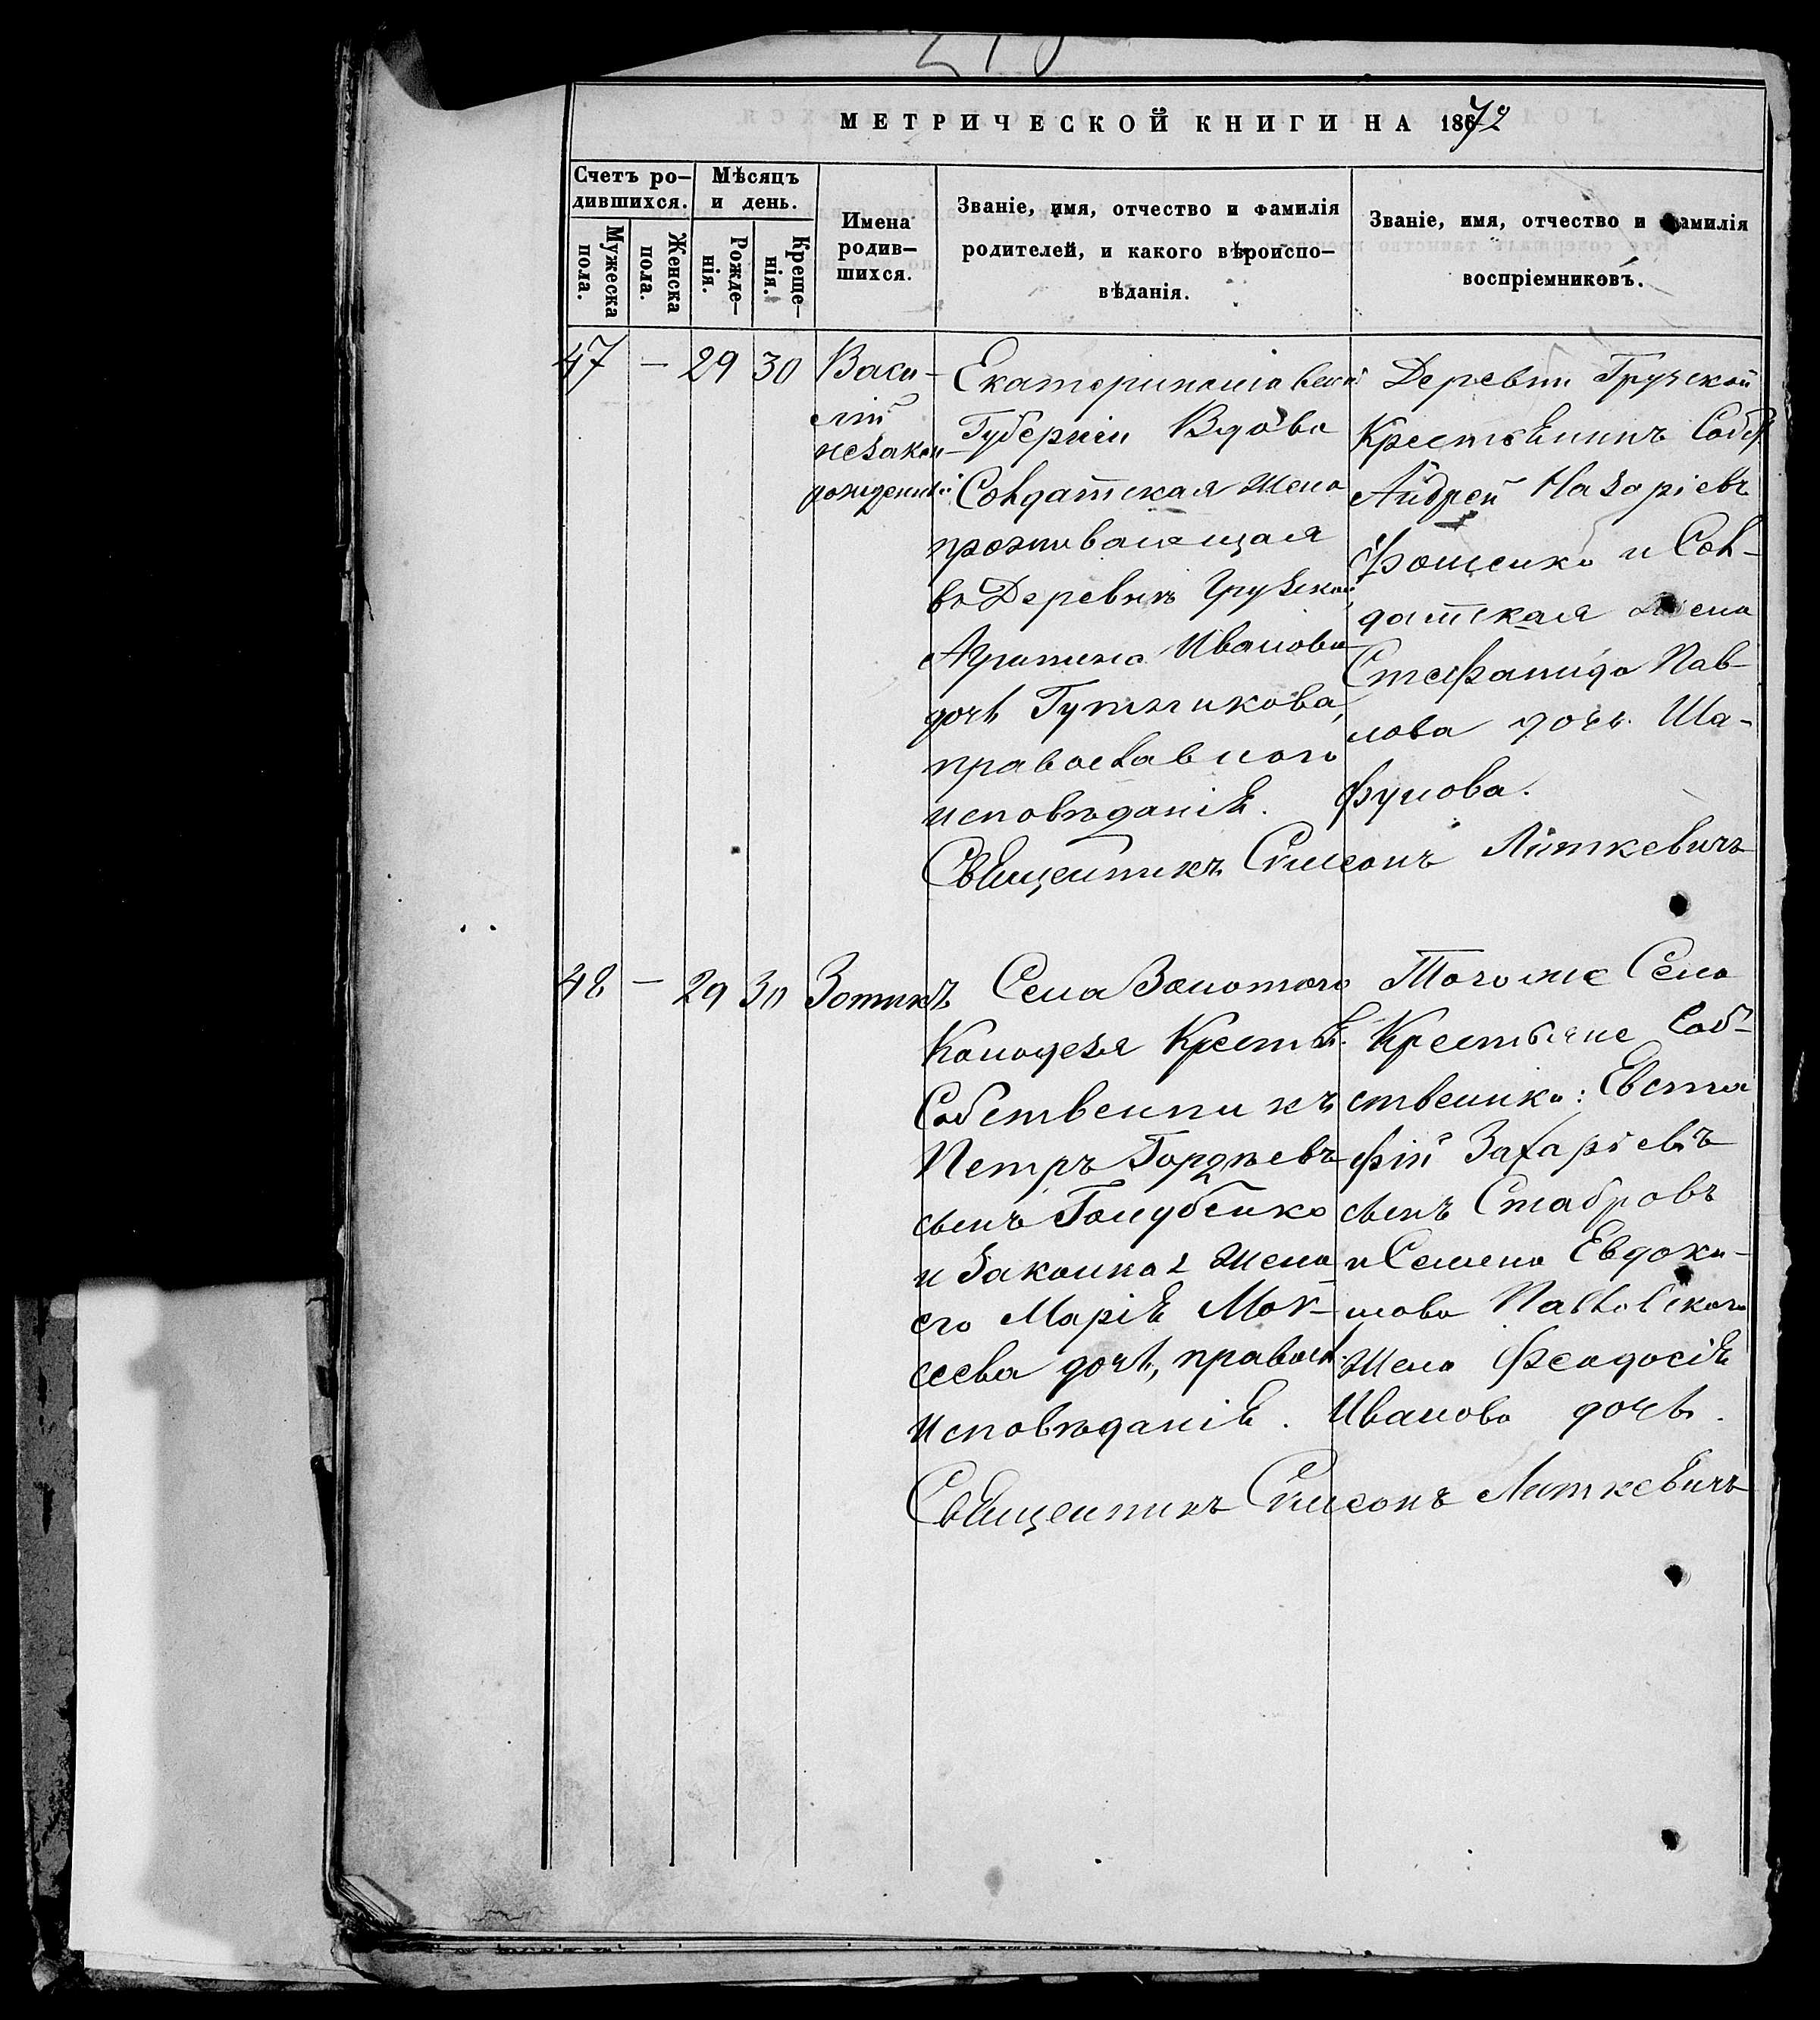 МЕТРИЧЕСКОЙ КНИГИ НА 1872
Счетъ ро-
дившихся.
Мужеска
пола.
Женска
пола.
Мѣсяцъ
и день.
Рожде-
нія.
Креще-
нія.
Имена
родив-
шихся.
Званіе, имя, отчество и фамилія
родителей, и какого вѣроиспо-
вѣданія.
Званіе, имя, отчество и фамилія
воспріемниковъ.
47 — 29 30
Васи-
лій
незакон-
рожденный
Екатеринославской
Губерніи Вдова
Солдатская жена
проживающая
въ Деревнѣ Грузской
Агрипина Иванова
дочь Гутникова,
православного
исповѣданія.
Деревни Грузской
Крестьянинъ Собст
Андрей Назаріевъ
Фоменко и Сол-
датская жена
Стефанида Пав-
лова дочь Ша-
фунова.
Священникъ Симеонъ Литкевичъ
48 — 29 30
Зотикъ
Села Золотого
Колодезя Крестья.
Собственникъ
Петръ Гордѣевъ
сынъ Голубенко
и законная жена
его Марія Мок-
сеева дочь, правосл.
исповѣданія.
Того же Села
Крестьяне Соб-
ственники: Евста
фій Захаріевъ
сынъ Ставровъ
и Семена Евдоки-
мова Павловского
жена Феодосія
Иванова дочь.
Священникъ Симеонъ Литкевичъ